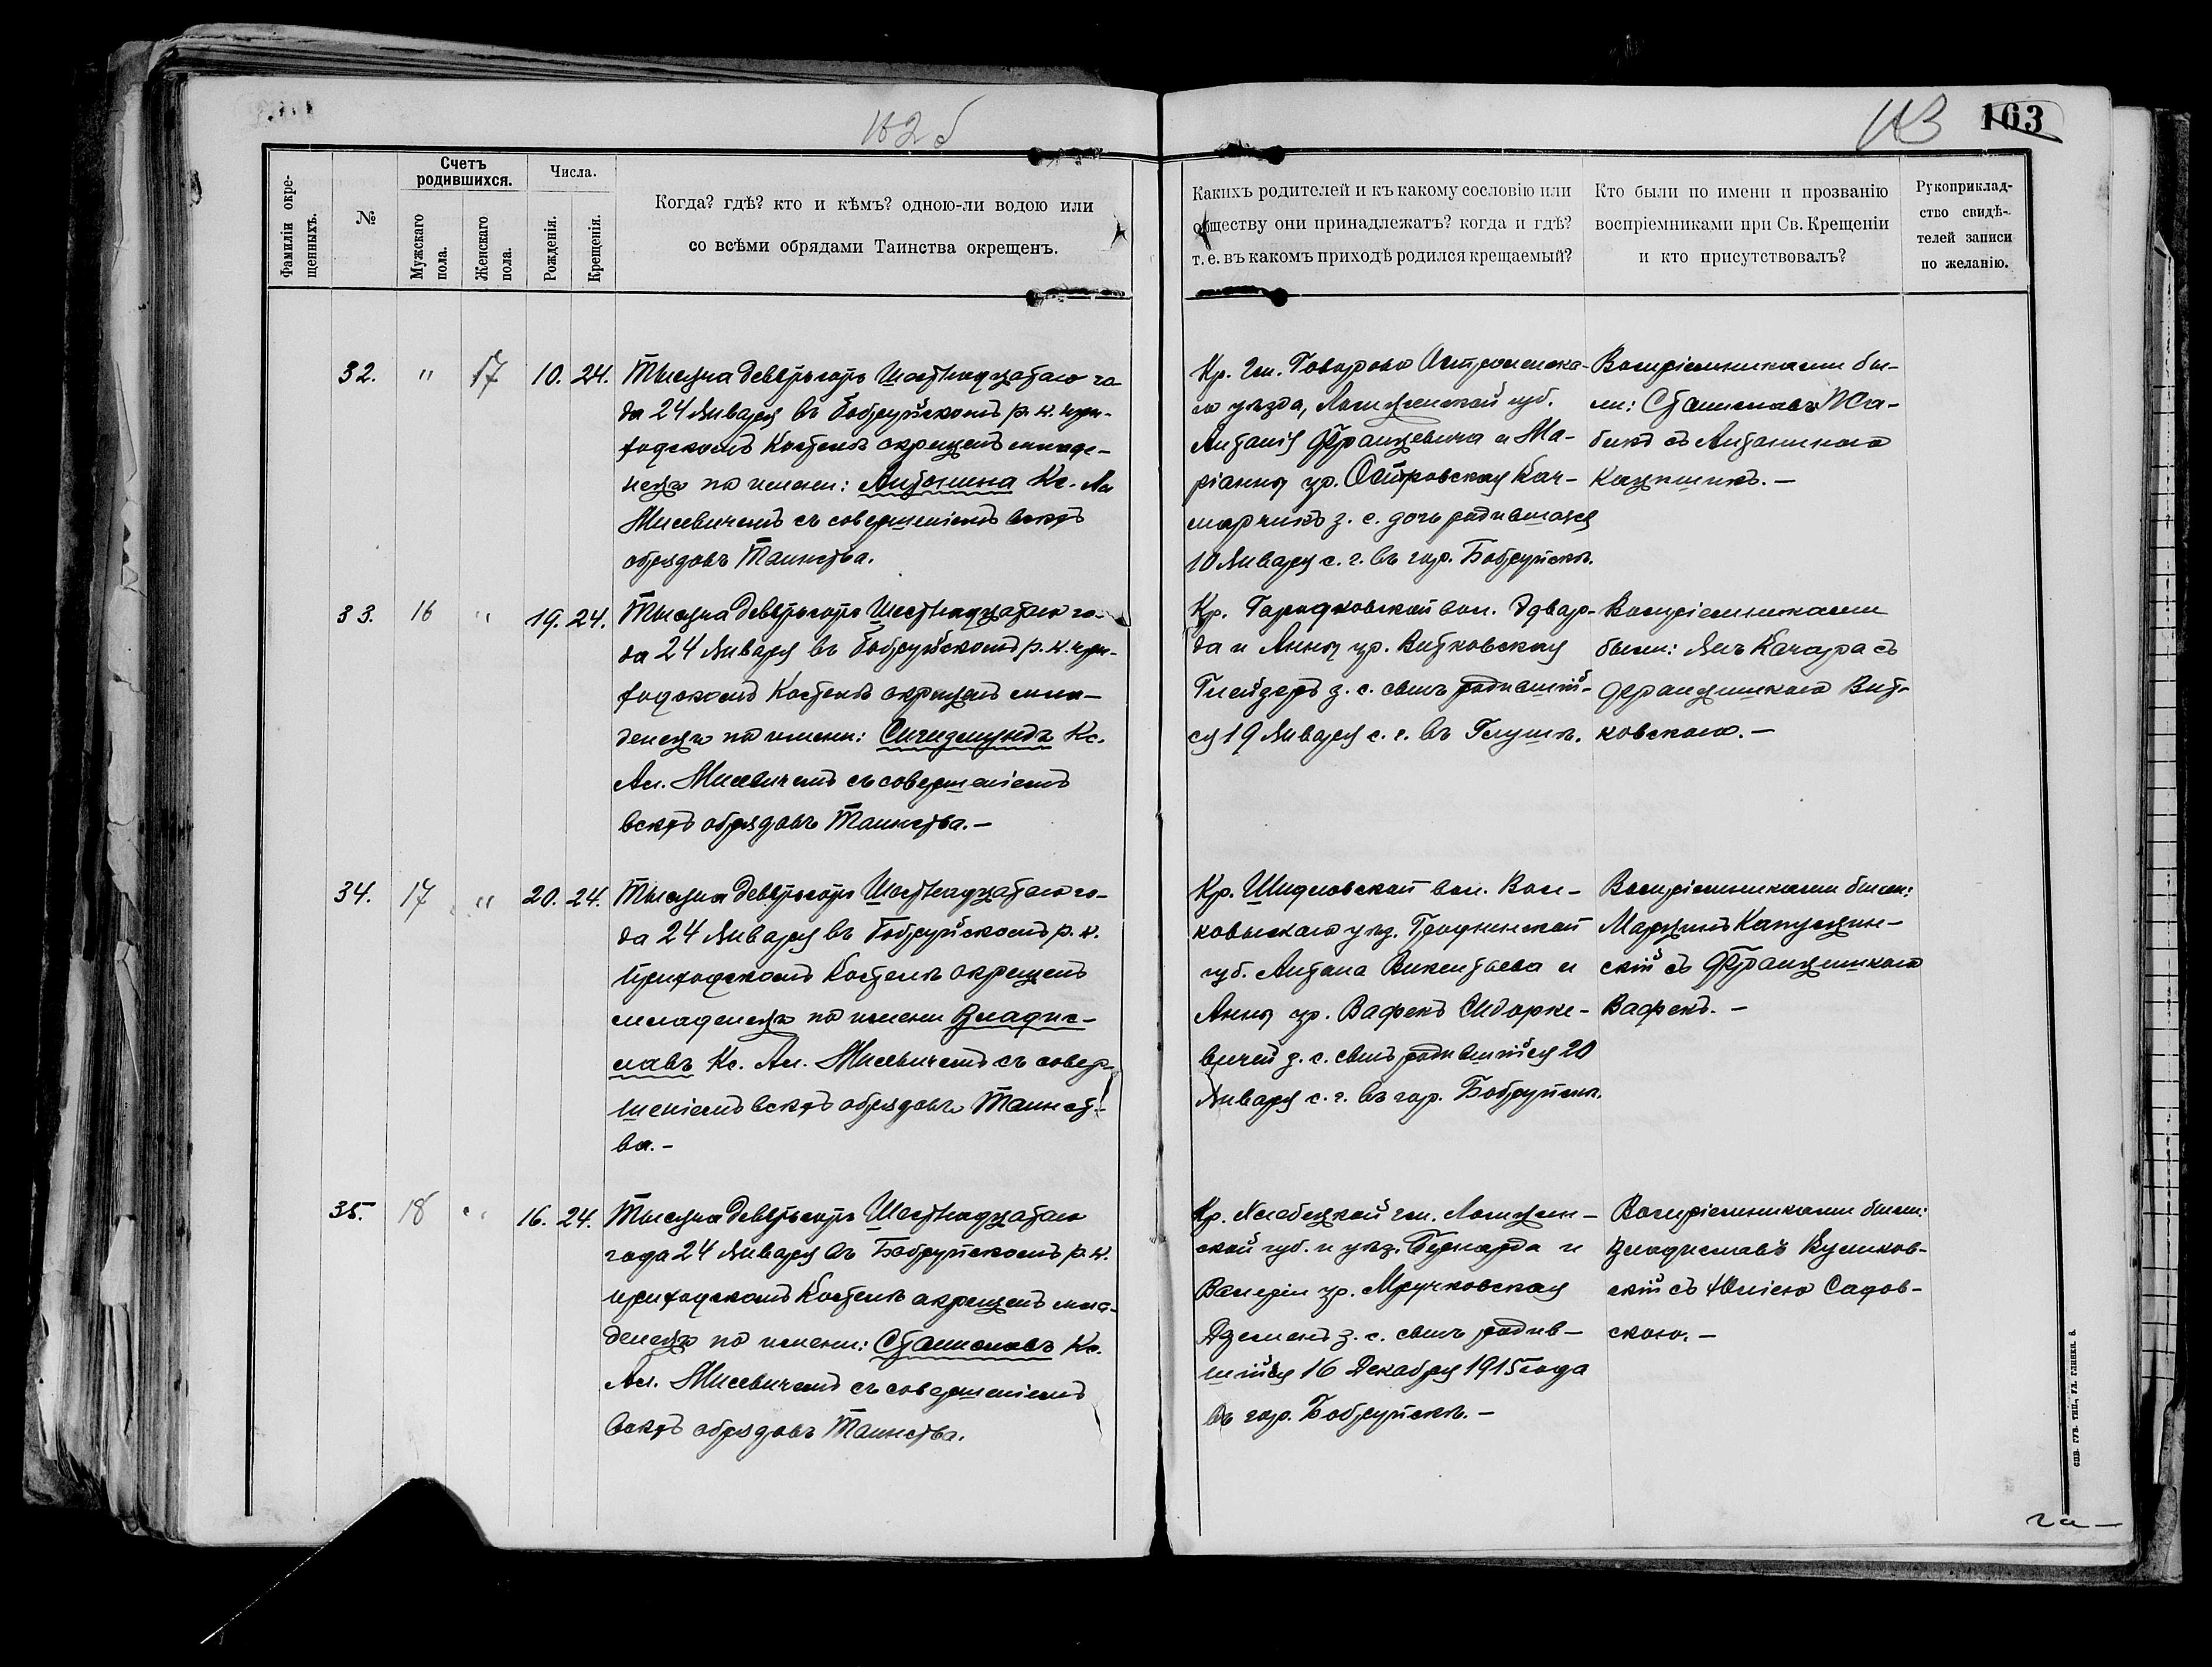 182 б
113 163
Фамиліи окрещенныхъ.
№
Счетъ родившихся.
Мужскаго пола.
Женскаго пола.
Числа.
Рожденія.
Крещенія.
Когда? гдѣ? кто и кѣмъ? одною-ли водою или
со всѣми обрядами Таинства окрещенъ.
Какихъ родителей и къ какому сословію или
обществу они принадлежатъ? когда и гдѣ?
т. е. въ какомъ приходѣ родился крещаемый?
Кто были по имени и прозванію
воспріемниками при Св. Крещеніи
и кто присутствовалъ?
Рукоприклад-
ство свидѣ-
телей записи
по желанію.
32. " 17 10. 24.
Тысяча девятьсотъ Шестнадцатаго го-
да 24 Января въ Бобруйскомъ р. к. при-
ходскомъ Костелѣ окрещенъ младе-
нецъ по имени: Антонина Кс. Ал
Мисевичемъ съ совершеніемъ всѣхъ
обрядовъ Таинства.
Кр. гм. Говорово Остроленска-
го уѣзда, Ломженской губ.
Антонія Францевича и Ма-
ріанны ур. Островская Кач-
марчикъ з. с. дочь родившаяся
10 Января с. г. въ гор. Бобруйскѣ.
Воспріемниками бы-
ли: Станиславъ Жа-
бикъ съ Антониною
Кацпшикъ. —
33. 16 " 19. 24.
Тысяча девятьсотъ Шестнадцатаго го-
да 24 Января въ Бобруйскомъ р. к. при-
ходскомъ Костелѣ окрещенъ мла-
денецъ по имени: Сигизмундъ Кс.
Ал. Мисевичемъ съ совершеніемъ
всѣхъ обрядовъ Таинства. —
Кр. Городковской вол. Эдвар-
да и Анны ур. Витковская
Глейзеръ з. с. сынъ родившій-
ся 19 Января с. г. въ Глушѣ.
Воспріемниками
были: Янъ Качара съ
Францишкою Вит-
ковскою. —
34. 17 " 20. 24.
Тысяча девятьсотъ Шестнадцатаго го-
да 24 Января въ Бобруйскомъ р. к.
приходскомъ Костелѣ окрещенъ
младенецъ по имени Владис-
лавъ Кс. Ал. Мисевичемъ съ совер-
шеніемъ всѣхъ обрядовъ Таинст-
ва. —
Кр. Шидловской вол. Вол-
ковыскаго уѣз. Гродненской
губ. Антона Викентьева и
Анны ур. Вафекъ Сидорке-
вичей з. с. сынъ родившійся 20
Января с. г. въ гор. Бобруйскѣ.
Воспріемниками были:
Марцинъ Капусцин-
скій съ Францишкою
Вафекъ. —
35. 18 " 16. 24.
Тысяча девятьсотъ Шестнадцатаго
года 24 Января въ Бобруйскомъ р. к.
приходскомъ Костелѣ окрещенъ мла-
денецъ по имени: Станиславъ Кс.
Ал. Мисевичемъ съ совершеніемъ
всѣхъ обрядовъ Таинства.
Кр. Хлебецкой гм. Ломжин-
ской губ. и уѣз. Бернарда и
Валеріи ур. Мручковская
Дземенъ з. с. сынъ родив-
шійся 16 Декабря 1915 года
въ гор. Бобруйскѣ. —
Воспріемниками были:
Владиславъ Куликов-
скій съ Юліею Садов-
скою. —
СПБ. ГУБ. ТИП., УЛ. ГЛИНКИ. 8.